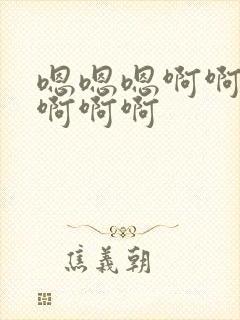 嗯嗯嗯啊啊
啊啊啊
焦義朝